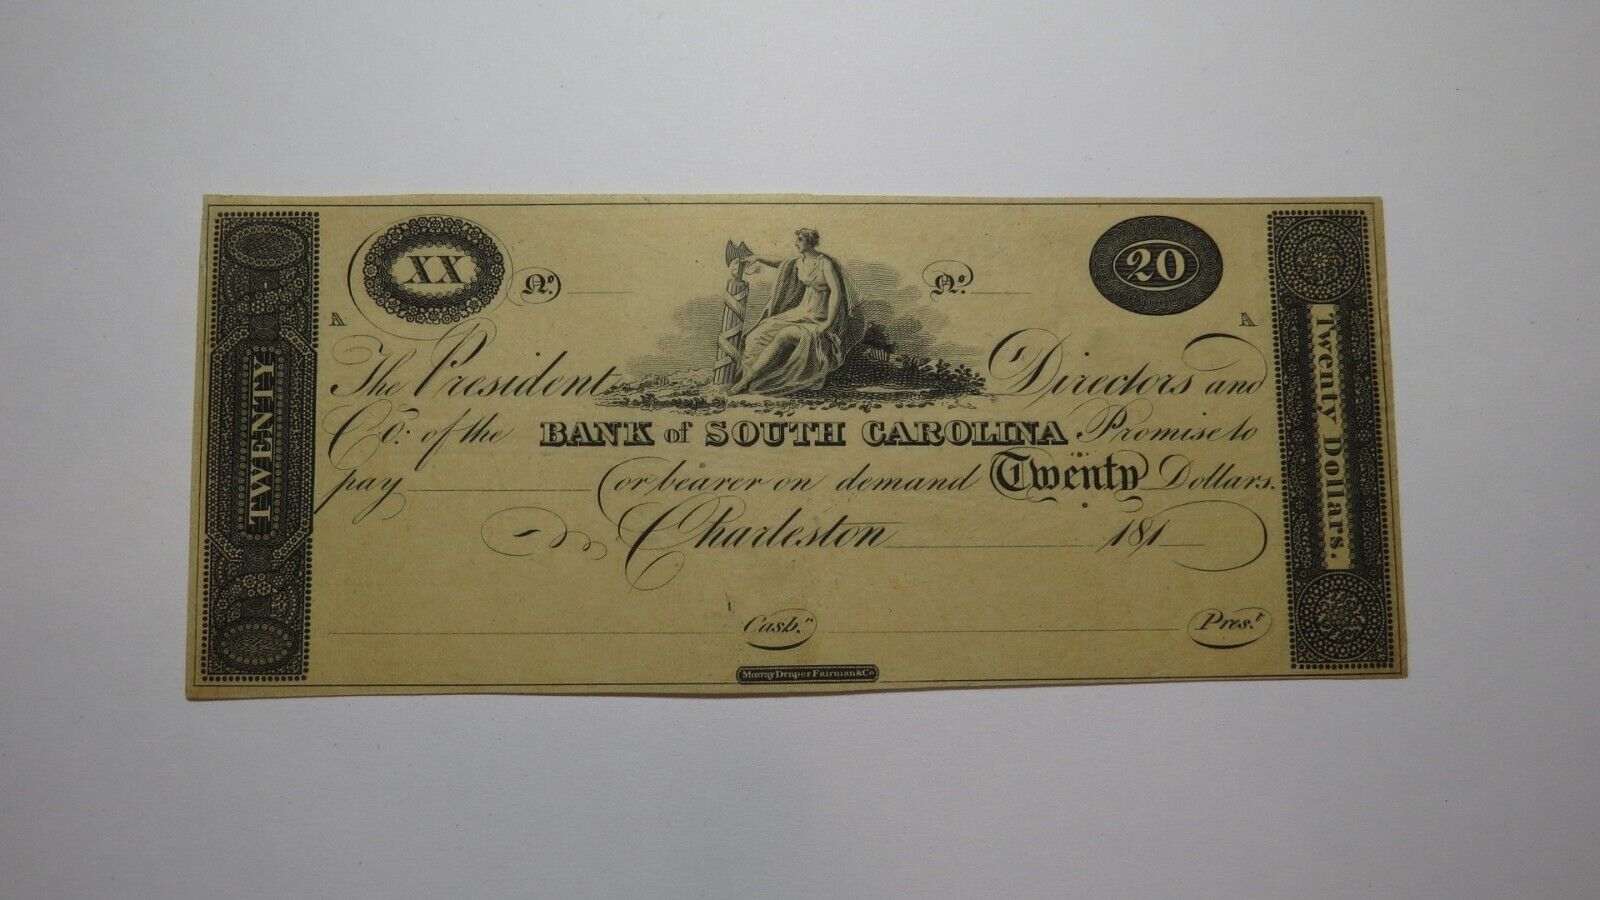 XX Nº. Nº. 20
A A
The President Directors and
Cº. of the BANK of SOUTH CAROLINA Promise to
pay or bearer on demand Twenty Dollars.
Charleston 181
Cashʳ. Presᵗ.
Murray Draper Fairman & Co
TWENTY
Twenty Dollars.